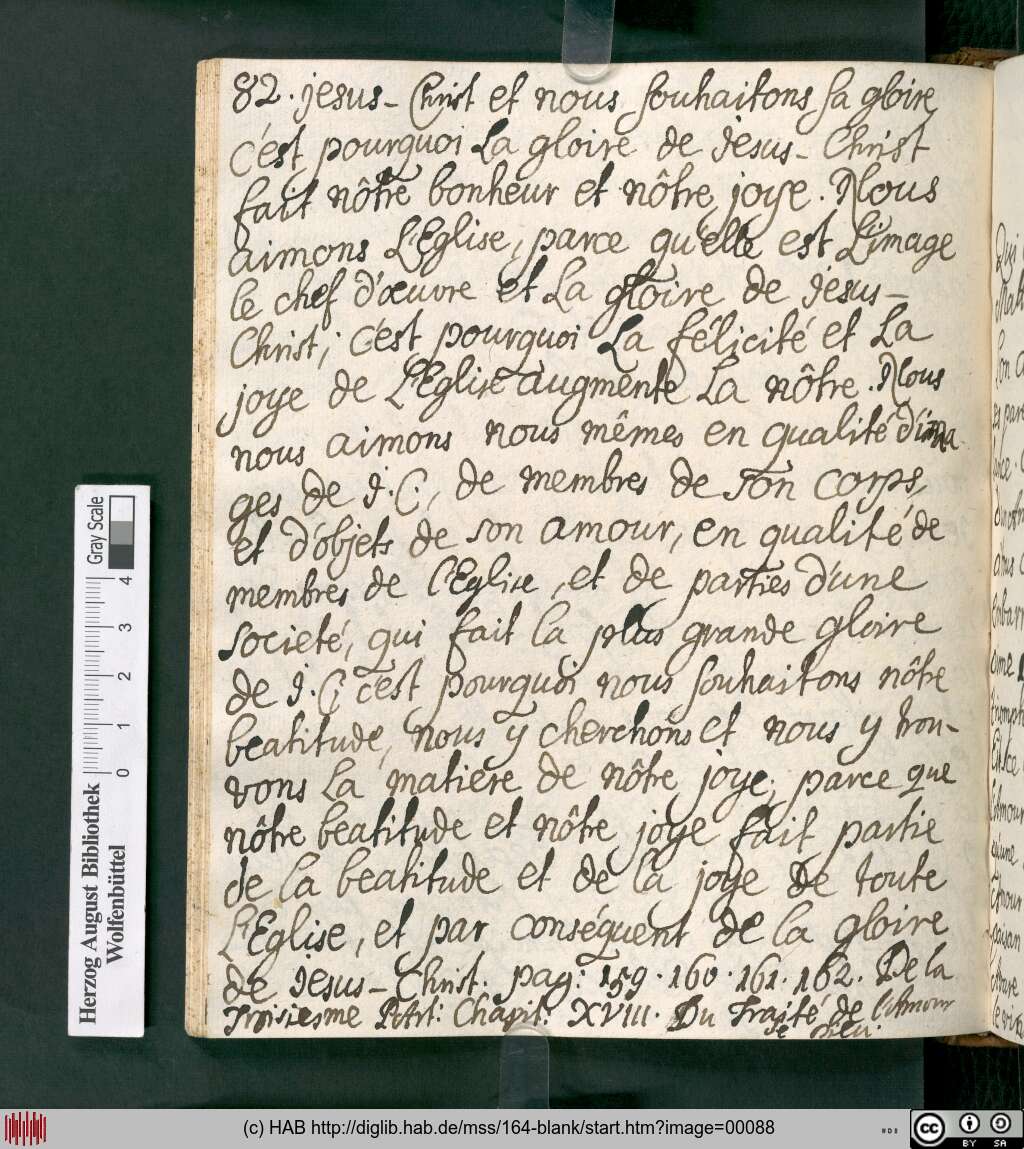 82. jesus-Christ et nous souhaitons sa gloire
c'est pourquoi La gloire de Jesus-Christ
fait nôtre bonheur et nôtre joye. Nous
aimons L'Eglise, parce qu'elle est L'image
le chef d'œuvre et La gloire de Jesus-
Christ; c'est pourquoi La félicité et La
joye de L'Eglise augmente La nôtre. Nous
nous aimons nous mêmes en qualité d'ima-
ges de J. C., de membres de son corps,
et d'objets de son amour, en qualité de
membres de l'Eglise, et de parties d'une
societé, qui fait la plus grande gloire
de J. C. c'est pourquoi nous souhaitons nôtre
beatitude, nous y cherchons et nous y trou-
vons La matiere de nôtre joye; parce que
nôtre beatitude et nôtre joye fait partie
de la beatitude et de la joye de toute
L'Eglise, et par conséquent de la gloire
de Jesus-Christ. pag: 159. 160. 161. 162. De la
Troisiesme Part: Chapit: XVIII. Du Traité de l'Amour
de Dieu.
Gray Scale
4
3
2
1
0
Herzog August Bibliothek
Wolfenbüttel
(c) HAB http://diglib.hab.de/mss/164-blank/start.htm?image=00088
cc BY SA